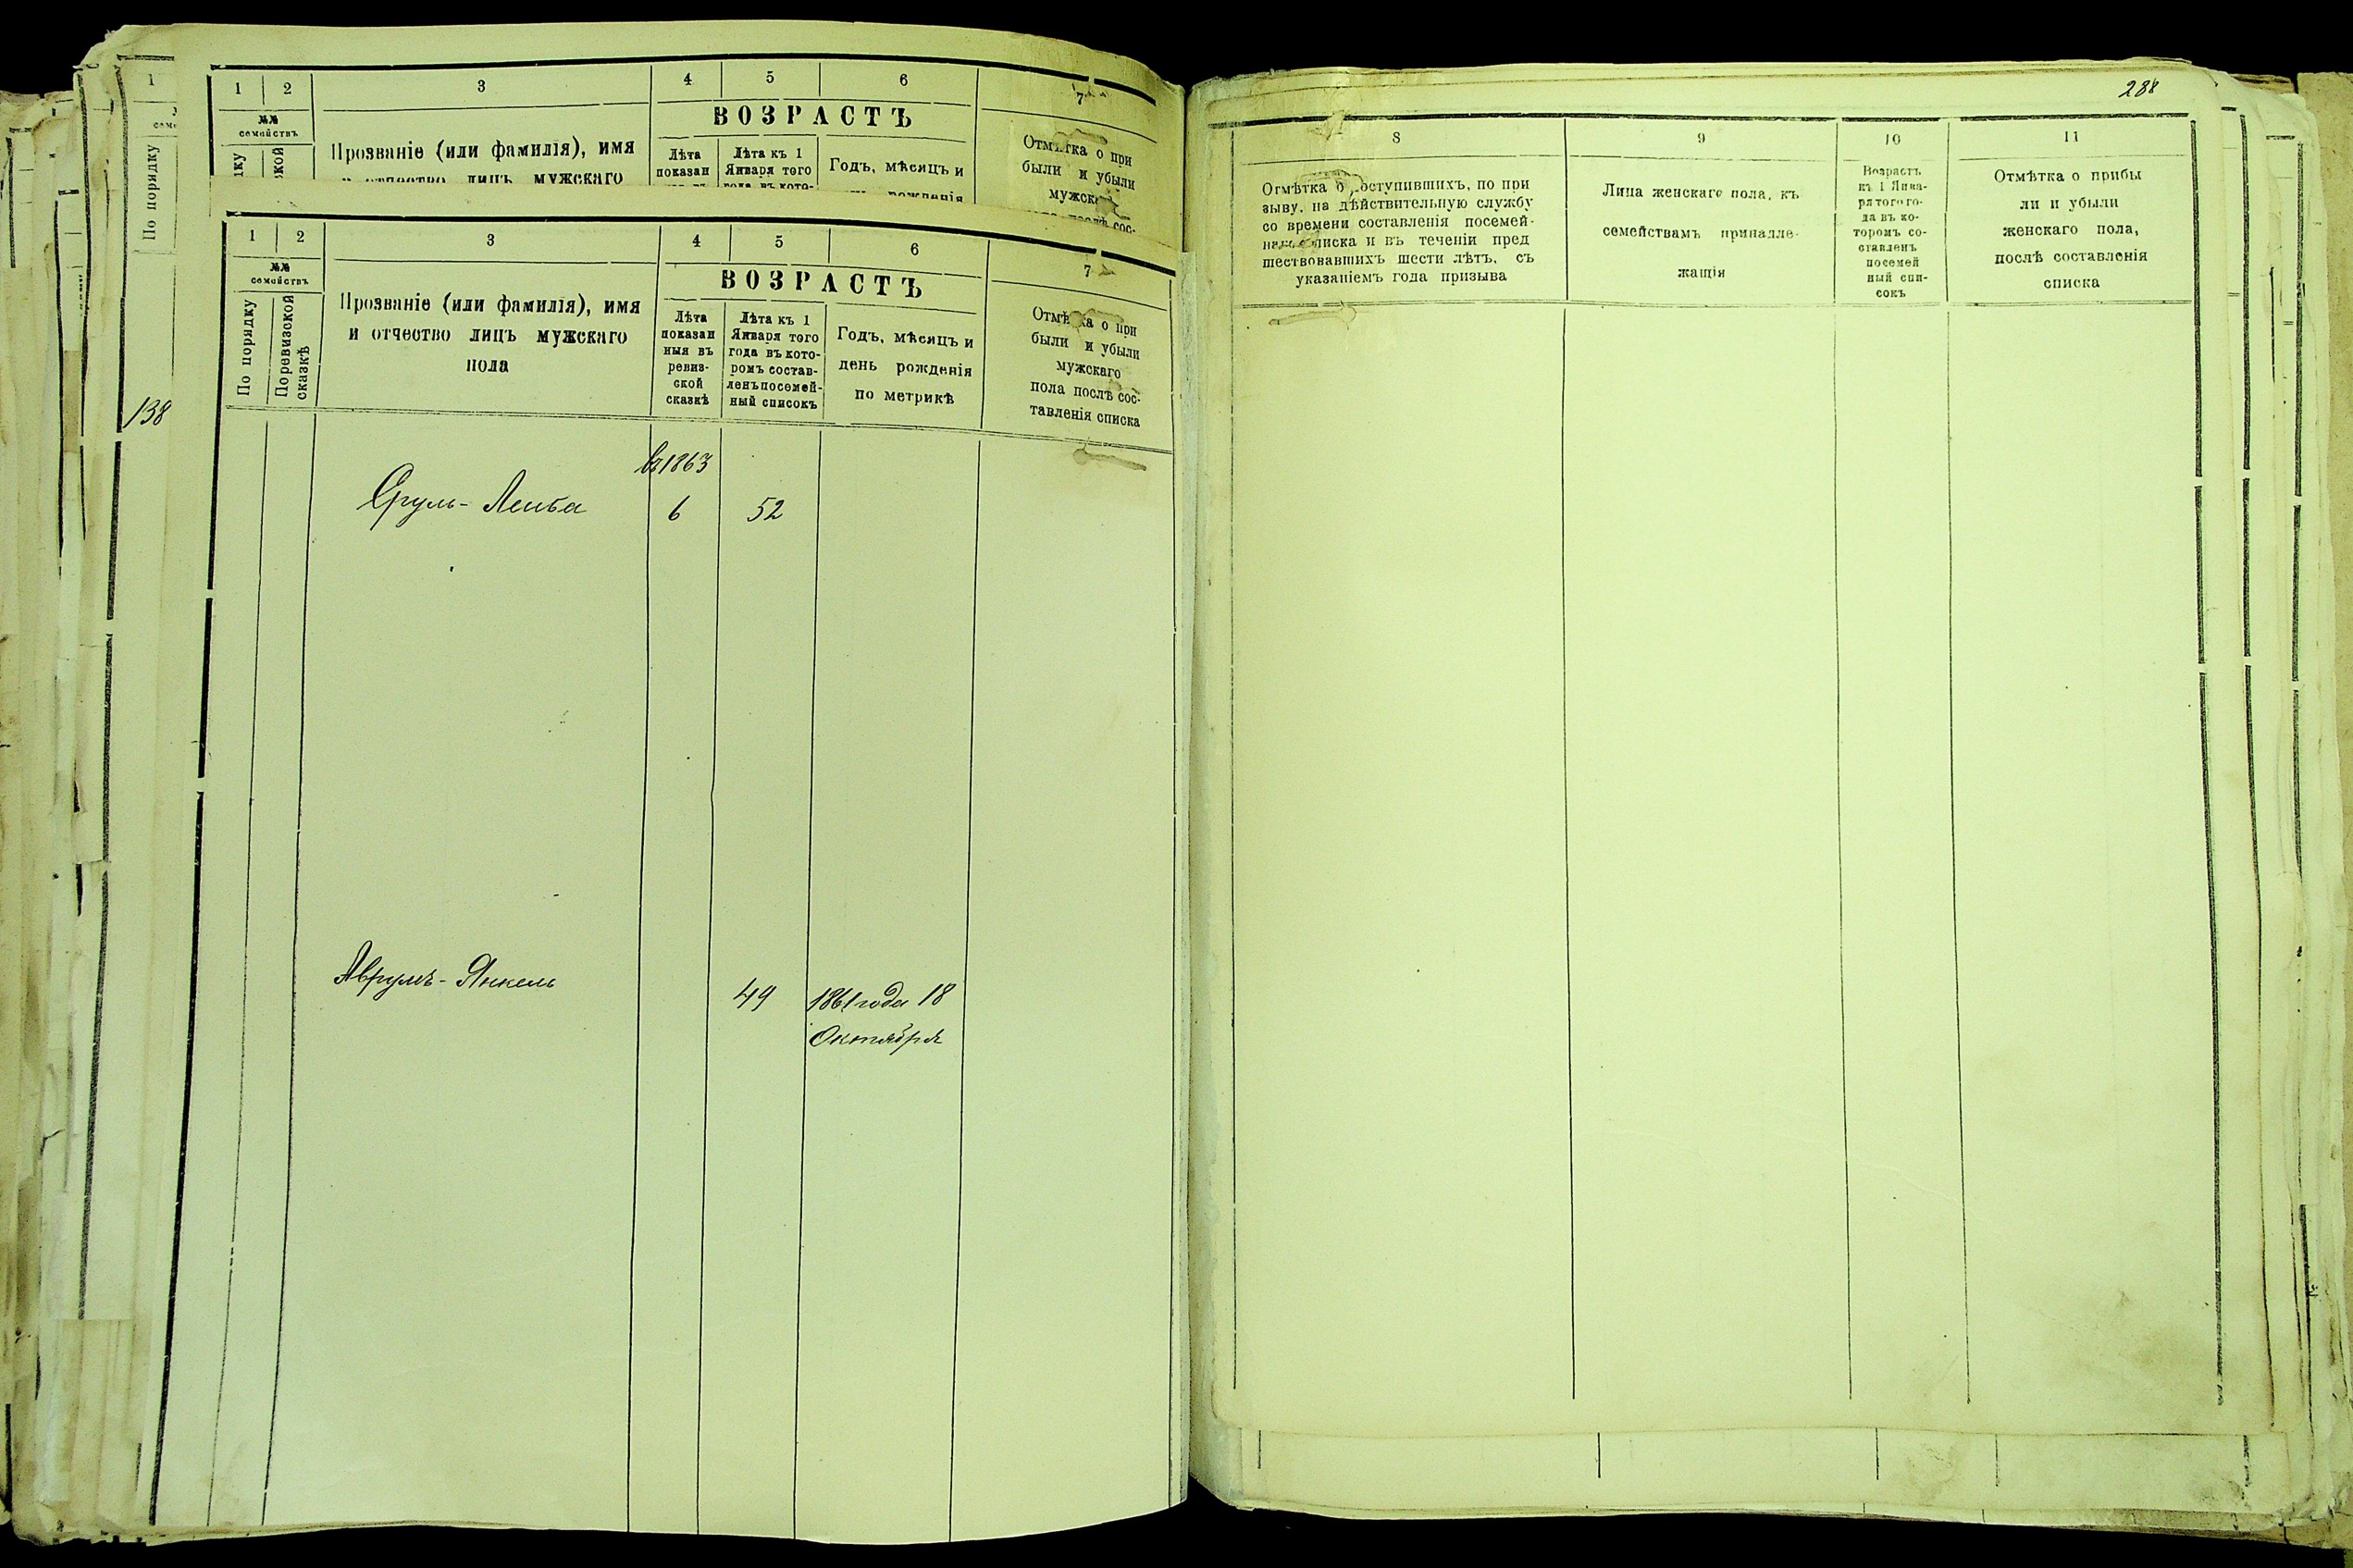 1
По порядку
138
1 2 3 4 5 6 7
№№
семействъ
Прозваніе (или фамилія), имя
ВОЗРАСТЪ
Лѣта
показан
Лѣта къ 1
Января того
Годъ, мѣсяцъ и
были и убыли
1 2 3 4 5 6 7
№№
семействъ
По порядку
По ревизской
сказкѣ
Прозваніе (или фамилія), имя
и отчество лицъ мужскаго
пола
ВОЗРАСТЪ
Лѣта
показан
ныя въ
ревиз-
ской
сказкѣ
Лѣта къ 1
Января того
года въ кото-
ромъ состав-
ленъ посемей-
ный списокъ
Годъ, мѣсяцъ и
день рожденія
по метрикѣ
Отмѣтка о при
были и убыли
мужскаго
пола послѣ сос-
тавленія списка
въ 1863
Сруль-Лейба 6 52
Аврумъ-Янкель 49 1861 года 18
Октября
288
8 9 10 11
Отмѣтка о поступившихъ, по при
зыву, на дѣйствительную службу
со времени составленія посемей-
наго списка и въ теченіи пред
шествовавшихъ шести лѣтъ, съ
указаніемъ года призыва
Лица женскаго пола, къ
семействамъ принадле-
жащія
Возрастъ
къ 1 Янва-
ря того го-
да въ ко-
торомъ со-
ставленъ
посемей
ный спи-
сокъ
Отмѣтка о прибы
ли и убыли
женскаго пола,
послѣ составленія
списка